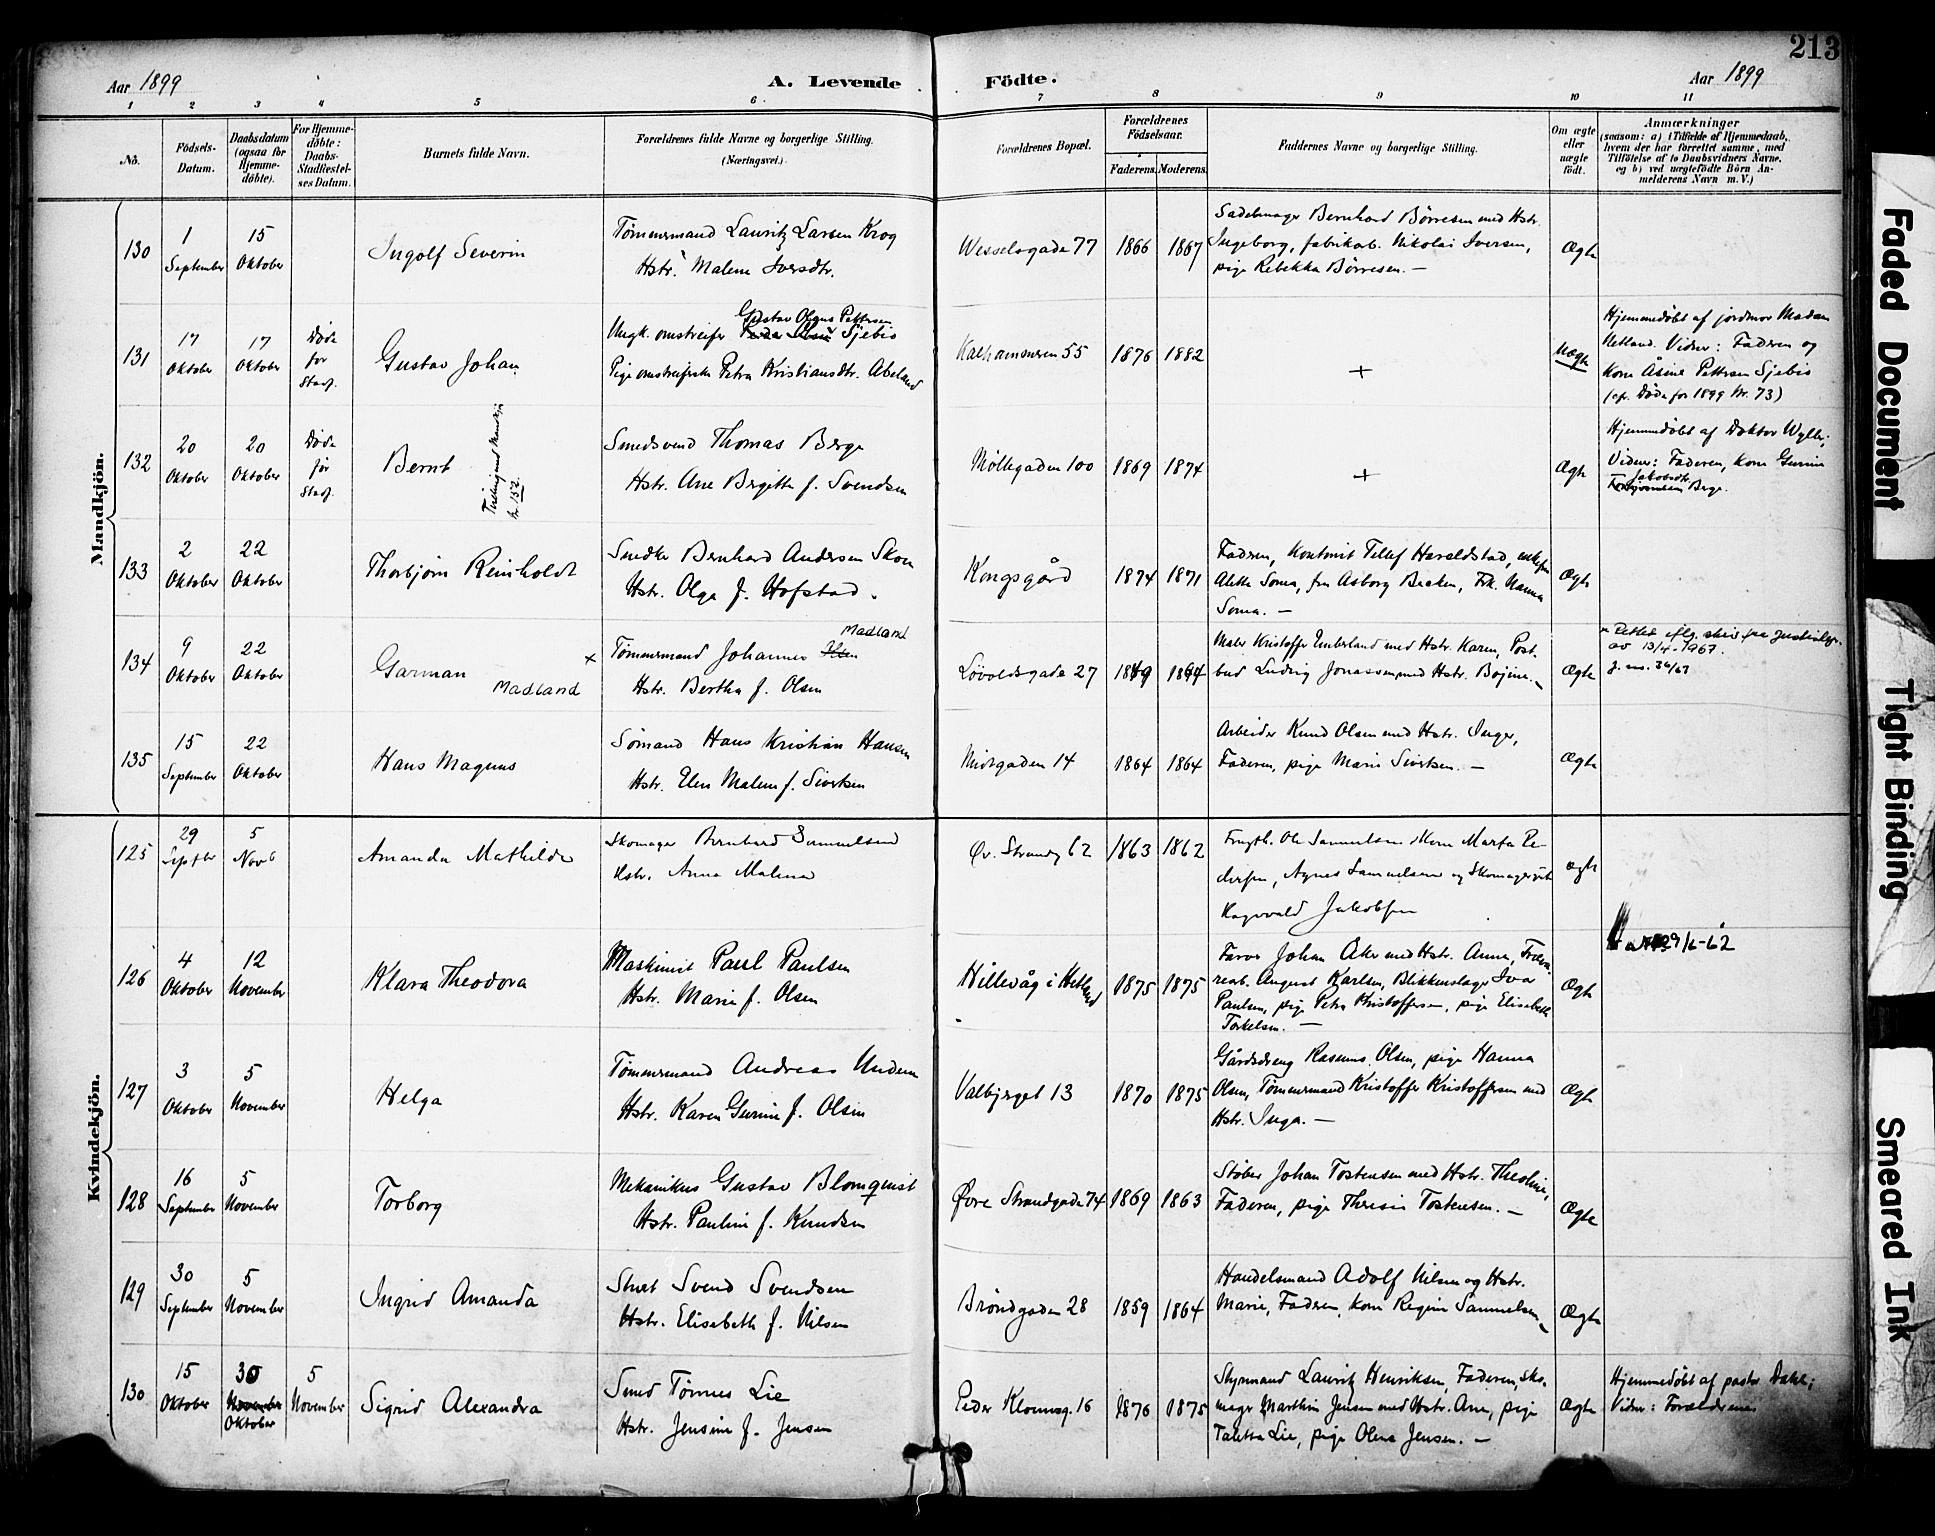 213
Aar 1899
A. Levende
Födte.
Aar 1899
1 2 3 4 5 6 7 8 9 10 11
No.
Födsels-
Datum.
Daabsdatum
(ogsaa for
Hjemme-
döbte).
For Hjemme-
döbte:
Daabs-
Stadfestel-
ses Datum.
Barnets fulde Navn.
Forældrenes fulde Navne og borgerlige Stilling.
(Næringsvei.)
Forældrenes Bopæl.
Forældrenes
Födselsaar.
Faderens. Moderens.
Faddernes Navne og borgerlige Stilling.
Om ægte
eller
uægte
födt.
Anmærkninger
(saasom: a) i Tilfælde af Hjemmedaab,
hvem der har forrettet samme, med
Tilföielse af to Daabsvidners Navne,
og b) ved uægtefödte Börn An-
melderens Navn m. V.)
Mandkjön.
130
1
September
15
Oktober
Ingolf Severin
Tømmermand Lauritz Larsen Krog
Hstr. Malene Iversdtr.
Wesselsgade 77
1866 1867
Sadelmager Bernhard Børresen med Hstr.
Ingeborg, fabrikarb. Nikolai Iversen,
pige Rebekka Børresen. —
Ægte
131
17
Oktober
17
Oktober
Døde
før
Stadf.
Gustav Johan
Gustav Olaus Pettersen
Ungk. omstreifer Sjebis
Pige omstreiferske Petra Kristiansdtr. Abeland
Kalhammeren 55
1876 1882
+
Uægte
Hjemmedøbt af jordmor Madam
Netland. Vidner: Faderen og
Kone Åsine Pettersen Sjebis
(cfr. Døde for 1899 Nr. 73)
132
20
Oktober
20
Oktober
Døde
før
Stadf.
Bernt
Tvilling med Kvindekjøn
Nr. 132.
Smedsvend Thomas Berge
Hstr. Ane Birgitte f. Svendsen
Møllegaden 100
1869 1874
+
Ægte
Hjemmedøbt af Doktor Wylle;
Vidner: Faderen, kone Gurine
Jakobsdtr.
Berge.
133
2
Oktober
22
Oktober
Thorbjørn Reinholdt
Bernhard Andersen Skou
Hstr. Olga f. Hofstad.
Kongsgård
1874 1871
Faderen, Kontorist Tellef Haraldstad, enkefru
Alette Soma, fru Asborg Brekken, Frk. Nanna
Soma. —
Ægte
134
9
Oktober
22
Oktober
Garman
Madland
×
Madland
Tømmermand Johannes Olsen
Hstr. Bertha f. Olsen
Løvoldsgade 27
1869 1864
Maler Kristoffer Umberland med Hstr. Karen, Post-
bud Ludvig Jonassen med Hstr. Bojine. —
Ægte
× Rettet iflg. skriv fra Justisdep.
av 13/4-1967.
j. nr. 36/67
135
15
September
22
Oktober
Hans Magnus
Sømand Hans Kristian Hansen
Hstr. Elen Malene f. Sivertsen
Nidsgaden 14
1864 1864
Arbeider Knud Olsen med Hstr. Inger,
Faderen, pige Marie Sivertsen. —
Ægte
Kvindekjön.
125
29
Septbr
5
Novb
Amanda Mathilde
Skomager Bernhard Samuelsen
Hstr. Anna Malene
Øv. Strandg 62
1863 1862
Ole Samuelsen, Kone Marta Pe-
dersen, Agnes Samuelsen og Skomagersvd
Ragnvald Jakobsen
ægte
126
4
Oktober
12
November
Klara Theodora
Maskinist Paul Paulsen
Hstr. Marie f. Olsen
Hillevåg i Hetland
1875 1875
Farver Johan Aker med Hstr. Anna,
August Karlsen, Blikkenslager Ivar
Paulsen, pige Petra Kristoffersen, pige Elisabeth
Torkelsen. —
Ægte
29/6-62
127
3
Oktober
5
November
Helga
Tømmermand Andreas Undem
Hstr. Karen Gurine f. Olsen
Valbjerget 13
1870 1875
Gårdsdreng Rasmus Olsen, pige Hanna
Olsen, Tømmermand Kristoffer Kristoffersen med
Hstr. Inga. —
Ægte
128
16
September
5
November
Torborg
Mekanikus Gustav Blomquist
Hstr. Pauline f. Knudsen
Øvre Strandgade 74
1869 1863
Støber Johan Tostensen med Hstr. Theoline,
Faderen, pige Therese Tostensen. —
Ægte
129
30
September
5
November
Ingrid Amanda
Svend Svendsen
Hstr. Elisabeth f. Nilsen
Brøndgaden 28
1859 1864
Handelsmand Adolf Nilsen og Hstr.
Marie, Faderen, kone Regine Samuelsen —
Ægte
130
15
Oktober
30
November
Oktober
5
November
Sigrid Alexandra
Smed Tønnes Lie
Hstr. Jensine f. Jensen
Peder Klowsg. 16
1876 1875
Styrmand Lauritz Henriksen, Faderen, sko-
mager Marthin Jensen med Hstr. Ane, pige
Taletta Lie, pige Olena Jensen. —
Ægte
Hjemmedøbt af pastor Dahl;
Vidner: Forældrene
Faded Document
Tight Binding
Smeared Ink